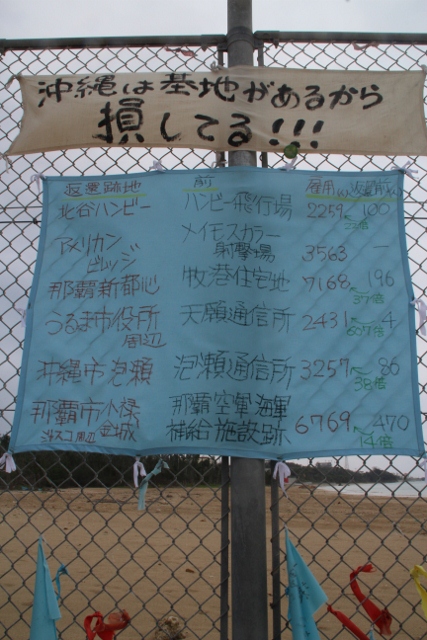 沖縄は基地があるから
損してる!!!
返還跡地 前 雇用 返還前
北谷ハンビー ハンビー飛行場 2259 100
アメリカン メイモスカラー
ビレッジ 射撃場 3563 —
那覇新都心 牧港住宅地 7168 196
37倍
うるま市役所 天願通信所 2431 4
周辺 607倍
沖縄市泡瀬 泡瀬通信所 3257 86
38倍
那覇市小禄 那覇空軍海軍
金城 補給施設跡 6769 470
14倍